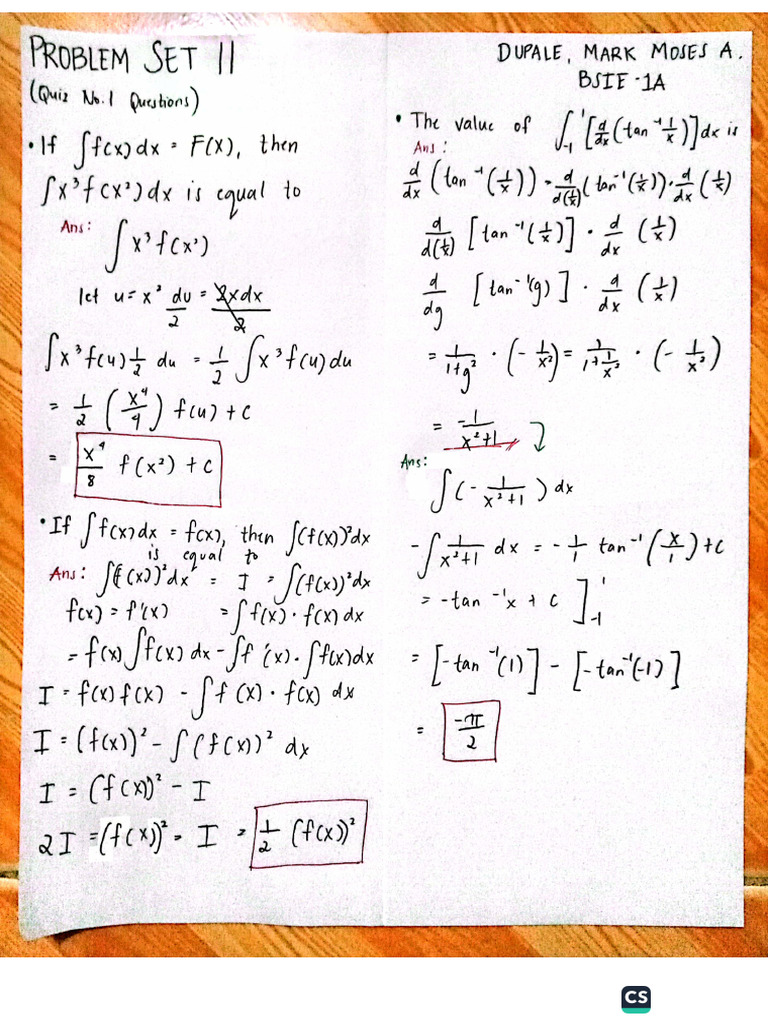 PROBLEM SET 11
(Quiz No.1 Questions)
• If ∫f(x)dx = F(x), then
∫x³f(x²)dx is equal to
Ans:
∫x³f(x²)
let u = x² du/2 = 2xdx/2
∫x³f(u)½ du = ½ ∫x³f(u)du
= ½ (x⁴/4) f(u) + c
= x⁴/8 f(x²) + c
• If ∫f(x)dx = f(x), then ∫(f(x))²dx
is equal to
Ans: ∫(f(x))²dx = I = ∫(f(x))²dx
f(x) = f'(x) = ∫f(x) · f(x)dx
= f(x)∫f(x)dx - ∫f'(x) · ∫f(x)dx
I = f(x)f(x) - ∫f(x) · f(x) dx
I = (f(x))² - ∫(f(x))² dx
I = (f(x))² - I
2I = (f(x))² = I = ½ (f(x))²
DUPALE, MARK MOSES A.
BSIE-1A
• The value of ∫₋₁¹[d/dx(tan⁻¹ 1/x)]dx is
Ans:
d/dx (tan⁻¹(1/x)) = d/d(1/x) (tan⁻¹(1/x)) · d/dx (1/x)
d/d(1/x) [tan⁻¹(1/x)] · d/dx (1/x)
d/dg [tan⁻¹(g)] · d/dx (1/x)
= 1/(1+g²) · (-1/x²) = 1/(1+1/x²) · (-1/x²)
= -1/(x²+1)
Ans:
∫(-1/(x²+1)) dx
-∫1/(x²+1) dx = -1/1 tan⁻¹(x/1) + c
= -tan⁻¹x + c]₋₁¹
= [-tan⁻¹(1)] - [-tan⁻¹(-1)]
= -π/2
CS